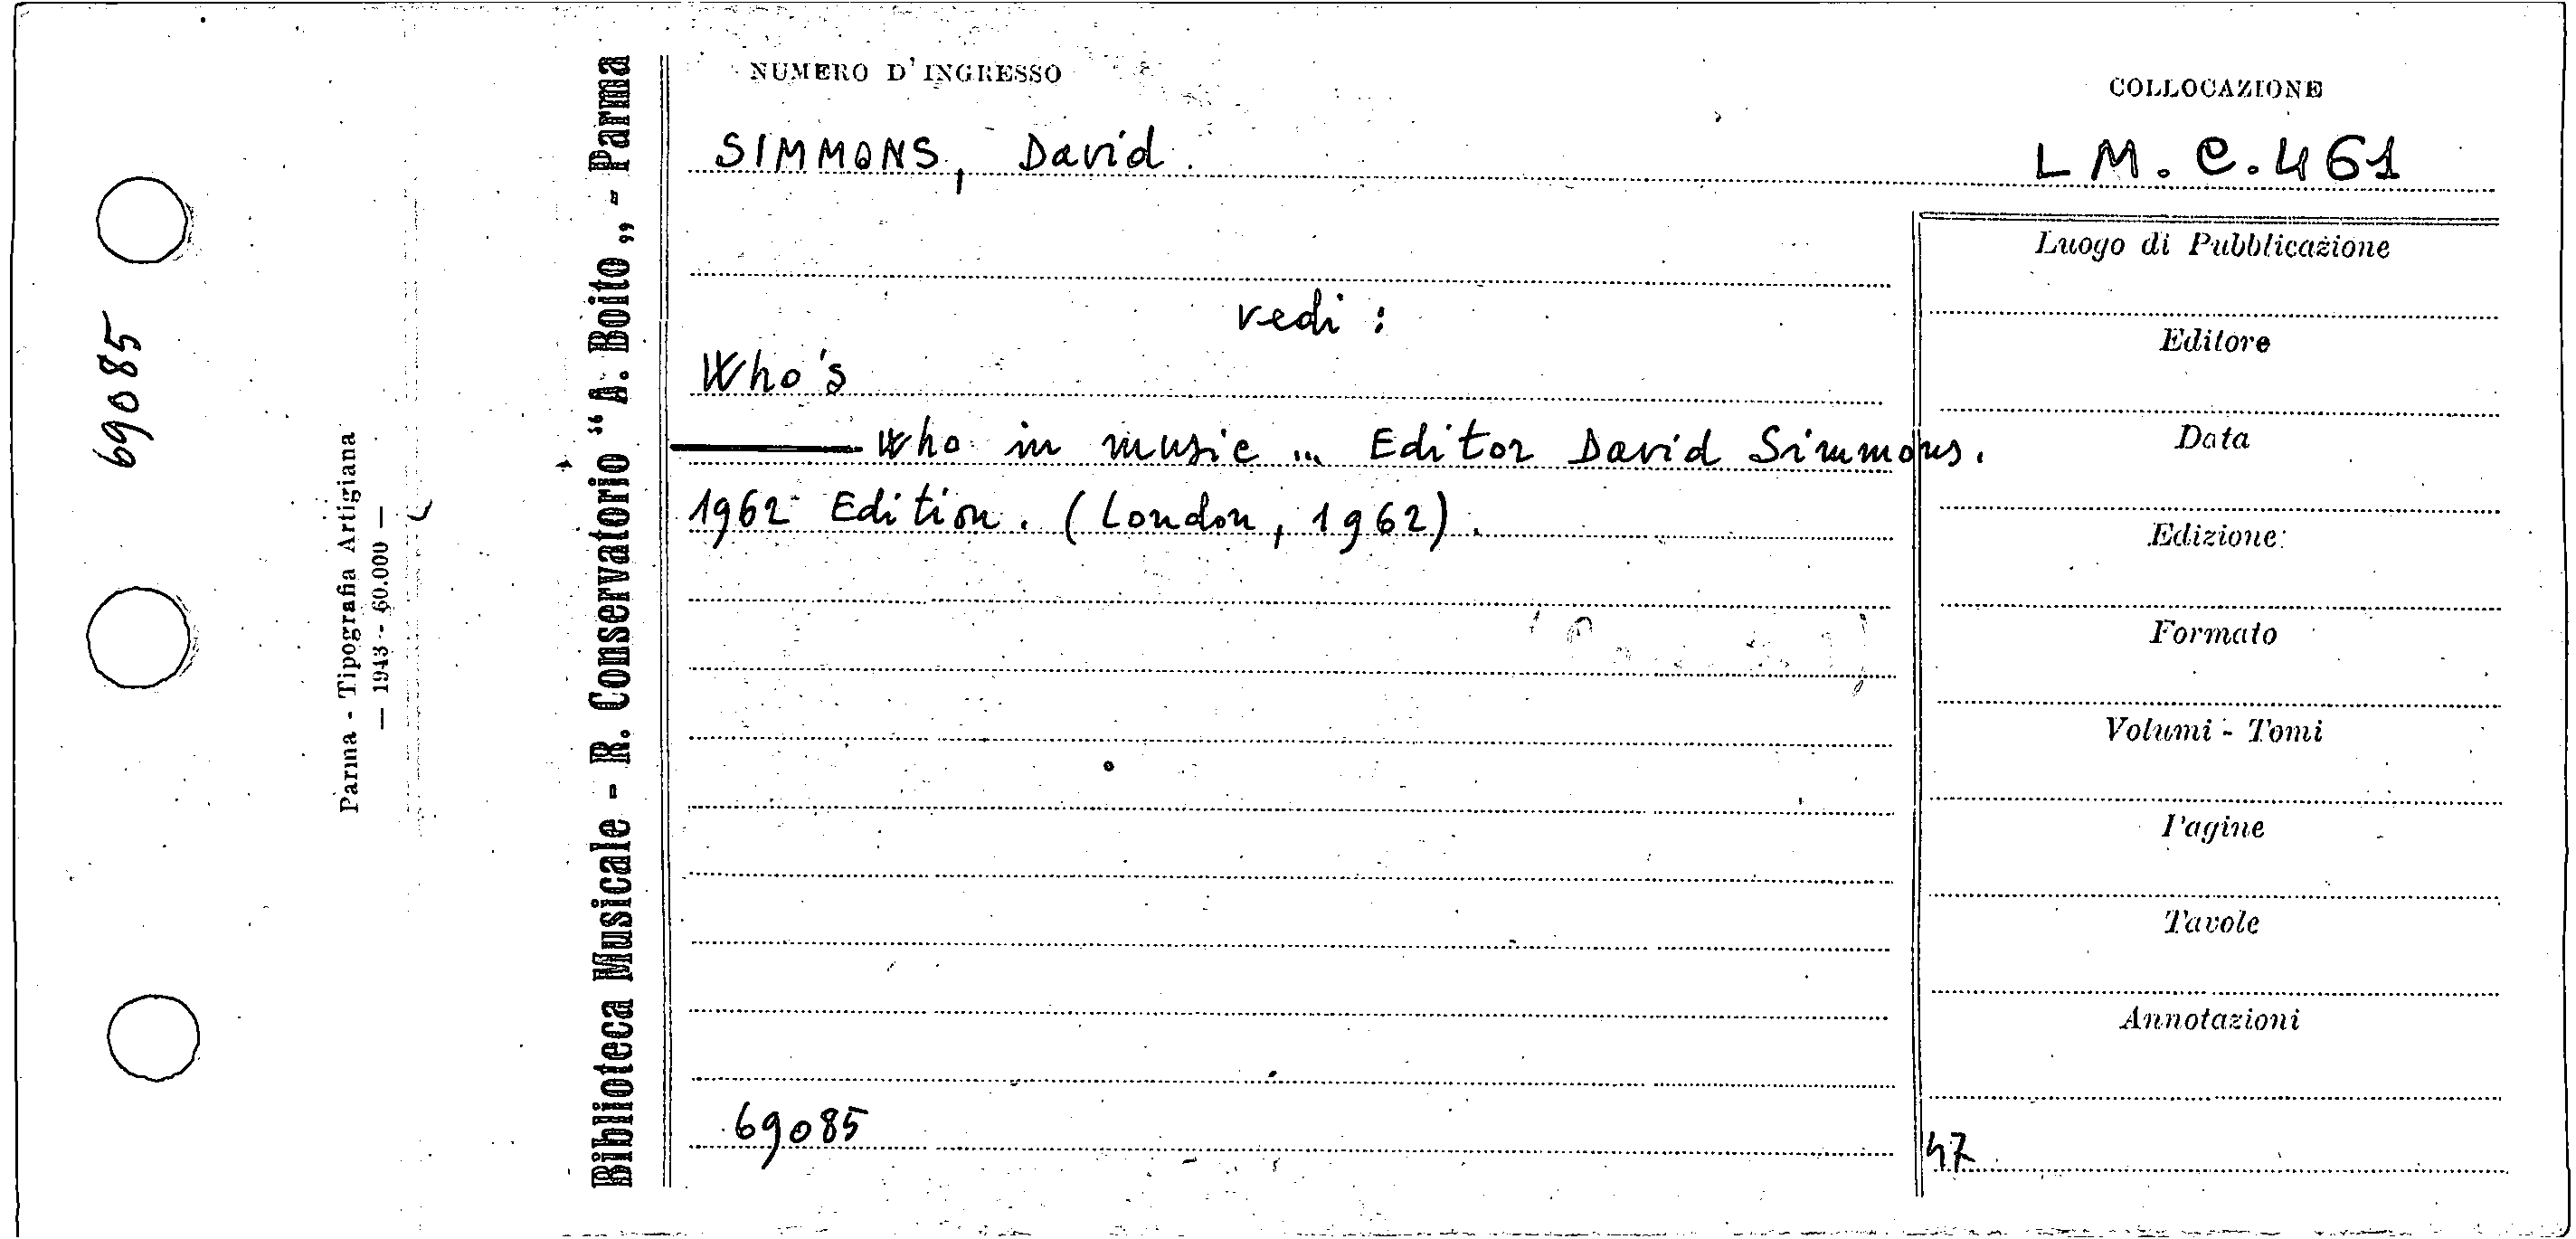 NUMERO D'INGRESSO
COLLOCAZIONE
SIMMONS, David
L M. C. 461
vedi :
Who's
——— Who in music ... Editor David Simmons.
1962 Edition. (London, 1962).
69085
Luogo di Pubblicazione
Editore
Data
Edizione
Formato
Volumi - Tomi
Pagine
Tavole
Annotazioni
47
Biblioteca Musicale - R. Conservatorio "A. Boito" - Parma
Parma - Tipografia Artigiana
— 1943 - 60.000 —
69085